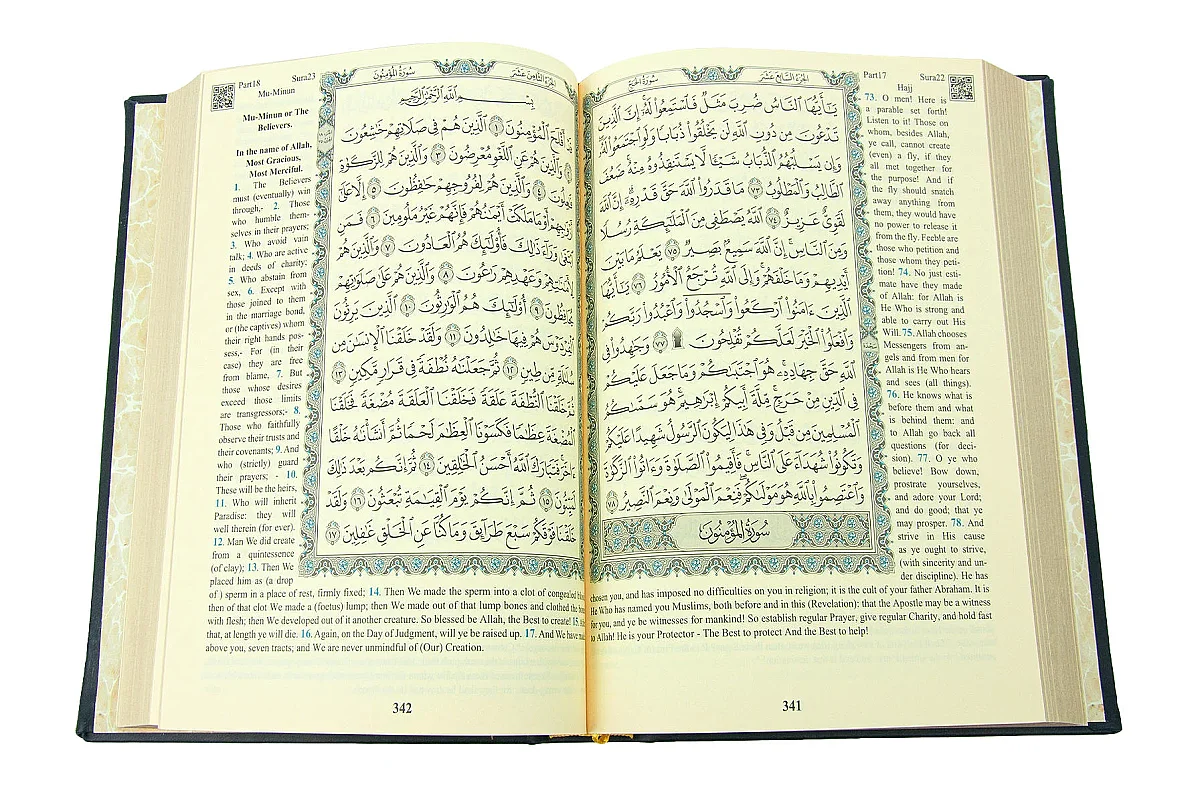 الجزء السابع عشر
سورة الحج
يَٰٓأَيُّهَا ٱلنَّاسُ ضُرِبَ مَثَلٌ فَٱسْتَمِعُوا۟ لَهُۥٓ إِنَّ ٱلَّذِينَ
تَدْعُونَ مِن دُونِ ٱللَّهِ لَن يَخْلُقُوا۟ ذُبَابًا وَلَوِ ٱجْتَمَعُوا۟ لَهُۥ
وَإِن يَسْلُبْهُمُ ٱلذُّبَابُ شَيْـًٔا لَّا يَسْتَنقِذُوهُ مِنْهُ ضَعُفَ
ٱلطَّالِبُ وَٱلْمَطْلُوبُ ٧٣ مَا قَدَرُوا۟ ٱللَّهَ حَقَّ قَدْرِهِۦٓ إِنَّ ٱللَّهَ
لَقَوِىٌّ عَزِيزٌ ٧٤ ٱللَّهُ يَصْطَفِى مِنَ ٱلْمَلَٰٓئِكَةِ رُسُلًا
وَمِنَ ٱلنَّاسِ إِنَّ ٱللَّهَ سَمِيعٌۢ بَصِيرٌ ٧٥ يَعْلَمُ مَا بَيْنَ
أَيْدِيهِمْ وَمَا خَلْفَهُمْ وَإِلَى ٱللَّهِ تُرْجَعُ ٱلْأُمُورُ ٧٦ يَٰٓأَيُّهَا
ٱلَّذِينَ ءَامَنُوا۟ ٱرْكَعُوا۟ وَٱسْجُدُوا۟ وَٱعْبُدُوا۟ رَبَّكُمْ
وَٱفْعَلُوا۟ ٱلْخَيْرَ لَعَلَّكُمْ تُفْلِحُونَ ۩ ٧٧ وَجَٰهِدُوا۟ فِى
ٱللَّهِ حَقَّ جِهَادِهِۦ هُوَ ٱجْتَبَىٰكُمْ وَمَا جَعَلَ عَلَيْكُمْ
فِى ٱلدِّينِ مِنْ حَرَجٍ مِّلَّةَ أَبِيكُمْ إِبْرَٰهِيمَ هُوَ سَمَّىٰكُمُ
ٱلْمُسْلِمِينَ مِن قَبْلُ وَفِى هَٰذَا لِيَكُونَ ٱلرَّسُولُ شَهِيدًا عَلَيْكُمْ
وَتَكُونُوا۟ شُهَدَآءَ عَلَى ٱلنَّاسِ فَأَقِيمُوا۟ ٱلصَّلَوٰةَ وَءَاتُوا۟ ٱلزَّكَوٰةَ
وَٱعْتَصِمُوا۟ بِٱللَّهِ هُوَ مَوْلَىٰكُمْ فَنِعْمَ ٱلْمَوْلَىٰ وَنِعْمَ ٱلنَّصِيرُ ٧٨
سُورَةُ المُؤْمِنُونَ
سجدة
Part17 Sura22
Hajj
73. O men! Here is
a parable set forth!
Listen to it! Those on
whom, besides Allah,
ye call, cannot create
(even) a fly, if they
all met together for
the purpose! And if
the fly should snatch
away anything from
them, they would have
no power to release it
from the fly. Feeble are
those who petition and
those whom they peti-
tion! 74. No just esti-
mate have they made
of Allah: for Allah is
He Who is strong and
able to carry out His
Will. 75. Allah chooses
Messengers from an-
gels and from men for
Allah is He Who hears
and sees (all things).
76. He knows what is
before them and what
is behind them: and
to Allah go back all
questions (for deci-
sion). 77. O ye who
believe! Bow down,
prostrate yourselves,
and adore your Lord;
and do good; that ye
may prosper. 78. And
strive in His cause
as ye ought to strive,
(with sincerity and un-
der discipline). He has
chosen you, and has imposed no difficulties on you in religion; it is the cult of your father Abraham. It is
He Who has named you Muslims, both before and in this (Revelation): that the Apostle may be a witness
for you, and ye be witnesses for mankind! So establish regular Prayer, give regular Charity, and hold fast
to Allah! He is your Protector - The Best to protect And the Best to help!
341
الجزء الثامن عشر
سورة المؤمنون
بِسْمِ ٱللَّهِ ٱلرَّحْمَٰنِ ٱلرَّحِيمِ
أَفْلَحَ ٱلْمُؤْمِنُونَ ١ ٱلَّذِينَ هُمْ فِى صَلَاتِهِمْ خَٰشِعُونَ
٢ وَٱلَّذِينَ هُمْ عَنِ ٱللَّغْوِ مُعْرِضُونَ ٣ وَٱلَّذِينَ هُمْ لِلزَّكَوٰةِ
فَٰعِلُونَ ٤ وَٱلَّذِينَ هُمْ لِفُرُوجِهِمْ حَٰفِظُونَ ٥ إِلَّا عَلَىٰٓ
أَزْوَٰجِهِمْ أَوْ مَا مَلَكَتْ أَيْمَٰنُهُمْ فَإِنَّهُمْ غَيْرُ مَلُومِينَ ٦ فَمَنِ
ٱبْتَغَىٰ وَرَآءَ ذَٰلِكَ فَأُو۟لَٰٓئِكَ هُمُ ٱلْعَادُونَ ٧ وَٱلَّذِينَ هُمْ
لِأَمَٰنَٰتِهِمْ وَعَهْدِهِمْ رَٰعُونَ ٨ وَٱلَّذِينَ هُمْ عَلَىٰ صَلَوَٰتِهِمْ
يُحَافِظُونَ ٩ أُو۟لَٰٓئِكَ هُمُ ٱلْوَٰرِثُونَ ١٠ ٱلَّذِينَ يَرِثُونَ
ٱلْفِرْدَوْسَ هُمْ فِيهَا خَٰلِدُونَ ١١ وَلَقَدْ خَلَقْنَا ٱلْإِنسَٰنَ مِن
سُلَٰلَةٍ مِّن طِينٍ ١٢ ثُمَّ جَعَلْنَٰهُ نُطْفَةً فِى قَرَارٍ مَّكِينٍ ١٣
ثُمَّ خَلَقْنَا ٱلنُّطْفَةَ عَلَقَةً فَخَلَقْنَا ٱلْعَلَقَةَ مُضْغَةً فَخَلَقْنَا
ٱلْمُضْغَةَ عِظَٰمًا فَكَسَوْنَا ٱلْعِظَٰمَ لَحْمًا ثُمَّ أَنشَأْنَٰهُ خَلْقًا
ءَاخَرَ فَتَبَارَكَ ٱللَّهُ أَحْسَنُ ٱلْخَٰلِقِينَ ١٤ ثُمَّ إِنَّكُم بَعْدَ ذَٰلِكَ
لَمَيِّتُونَ ١٥ ثُمَّ إِنَّكُمْ يَوْمَ ٱلْقِيَٰمَةِ تُبْعَثُونَ ١٦ وَلَقَدْ
خَلَقْنَا فَوْقَكُمْ سَبْعَ طَرَآئِقَ وَمَا كُنَّا عَنِ ٱلْخَلْقِ غَٰفِلِينَ ١٧
Part18 Sura23
Mu-Minun
Mu-Minun or The
Believers.
In the name of Allah,
Most Gracious,
Most Merciful.
1. The Believers
must (eventually) win
through,- 2. Those
who humble them-
selves in their prayers;
3. Who avoid vain
talk; 4. Who are active
in deeds of charity;
5. Who abstain from
sex, 6. Except with
those joined to them
in the marriage bond,
or (the captives) whom
their right hands pos-
sess,- For (in their
case) they are free
from blame, 7. But
those whose desires
exceed those limits
are transgressors;- 8.
Those who faithfully
observe their trusts and
their covenants; 9. And
who (strictly) guard
their prayers; - 10.
These will be the heirs,
11. Who will inherit
Paradise: they will
well therein (for ever).
12. Man We did create
from a quintessence
(of clay); 13. Then We
placed him as (a drop
of ) sperm in a place of rest, firmly fixed; 14. Then We made the sperm into a clot of congealed
then of that clot We made a (foetus) lump; then We made out of that lump bones and clothed the
with flesh; then We developed out of it another creature. So blessed be Allah, the Best to create! 15.
that, at length ye will die. 16. Again, on the Day of Judgment, will ye be raised up. 17. And We have
above you, seven tracts; and We are never unmindful of (Our) Creation.
342